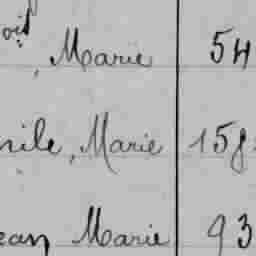 , Marie 54
nile, Marie 158
ean Marie 93